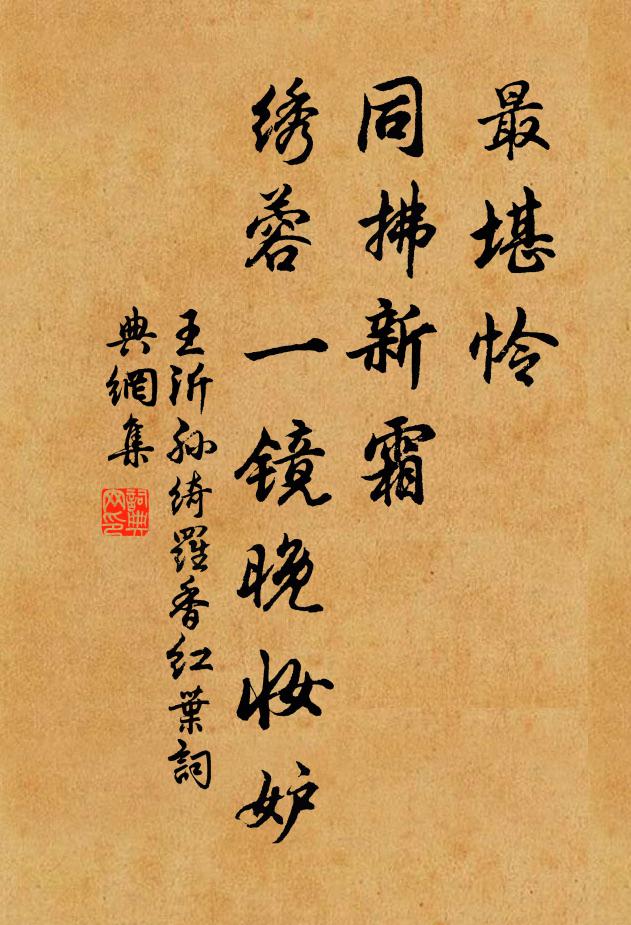 最堪怜
同拂新霜
绣蓉一镜晚妆妒
王沂孙绮羅香红葉詞
典網集
詞典
网印